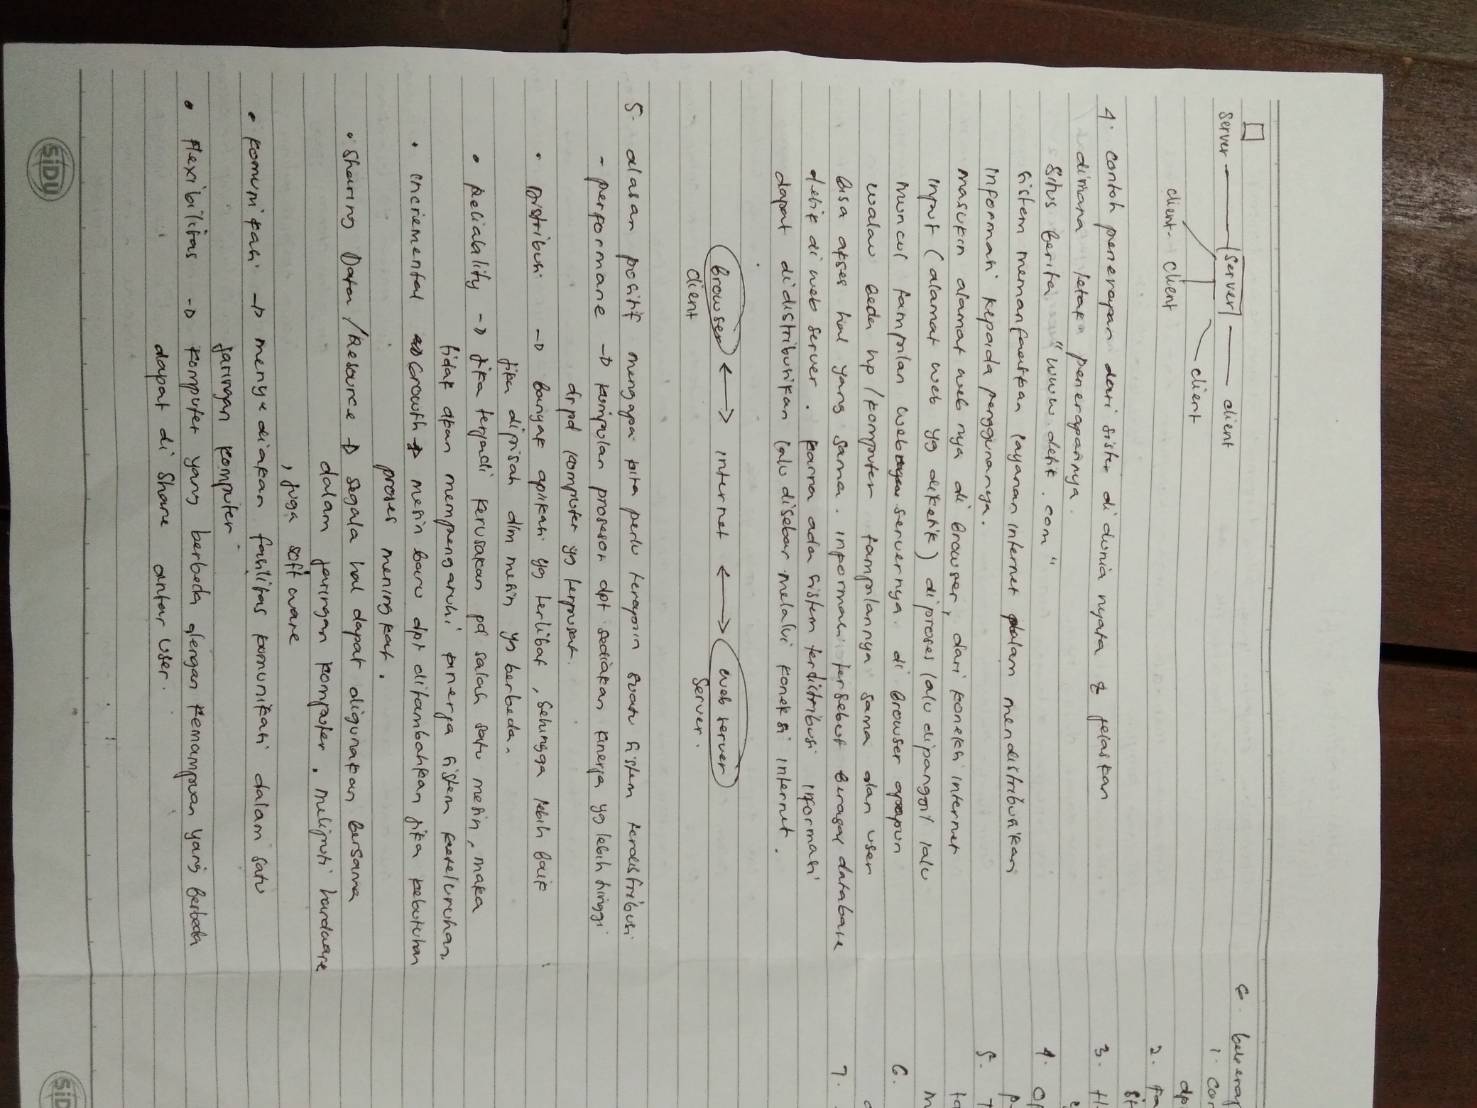 Server Server client
client
client client
4. contoh penerapan dari sister di dunia nyata & jelaskan
dimana letak penerapannya
Situs Berita "www detik.com"
Sistem memanfaatkan layanan internet dalam mendistribusikan
informasi kepada penggunanya.
masukin alamat web nya di Browser, dari koneksi internet
input (alamat web yg diketik) diproses lalu dipanggil lalu
muncul tampilan web servernya. di Browser apapun
walau beda hp/komputer tampilannya sama dan user
bisa akses hal yang sama. informasi tersebut berasal database
detik di web server. karna ada sistem terdistribusi informasi
dapat didistribusikan lalu disebar melalui koneksi internet.
Browser internet web server
client Server.
5. alasan positif mengapa kita perlu terapin suatu sistem terdistribusi
- performane → kumpulan prosesor dpt sediakan kinerja yg lebih tinggi
drpd komputer yg terpusat.
• Distribusi → Banyak aplikasi yg terlibat, sehingga lebih baik
jika dipisah dlm mesin yg berbeda.
• Reliability → jika terjadi kerusakan pd salah satu mesin, maka
tidak akan mempengaruhi kinerja sistem keseluruhan
• incremental Growth → mesin baru dpt ditambahkan jika kebutuhan
proses meningkat.
• Sharing Data/Resource → segala hal dapat digunakan bersama
dalam jaringan komputer. meliputi hardware
, juga software
• komunikasi → menyediakan fasilitas komunikasi dalam satu
jaringan komputer
• Flexibilitas → komputer yang berbeda dengan kemampuan yang berbeda
dapat di share antar user.
6. beberap
1. Car
dp
2. Fa
3.
4. Op
5. T
6.
7.
SiDU
SiD